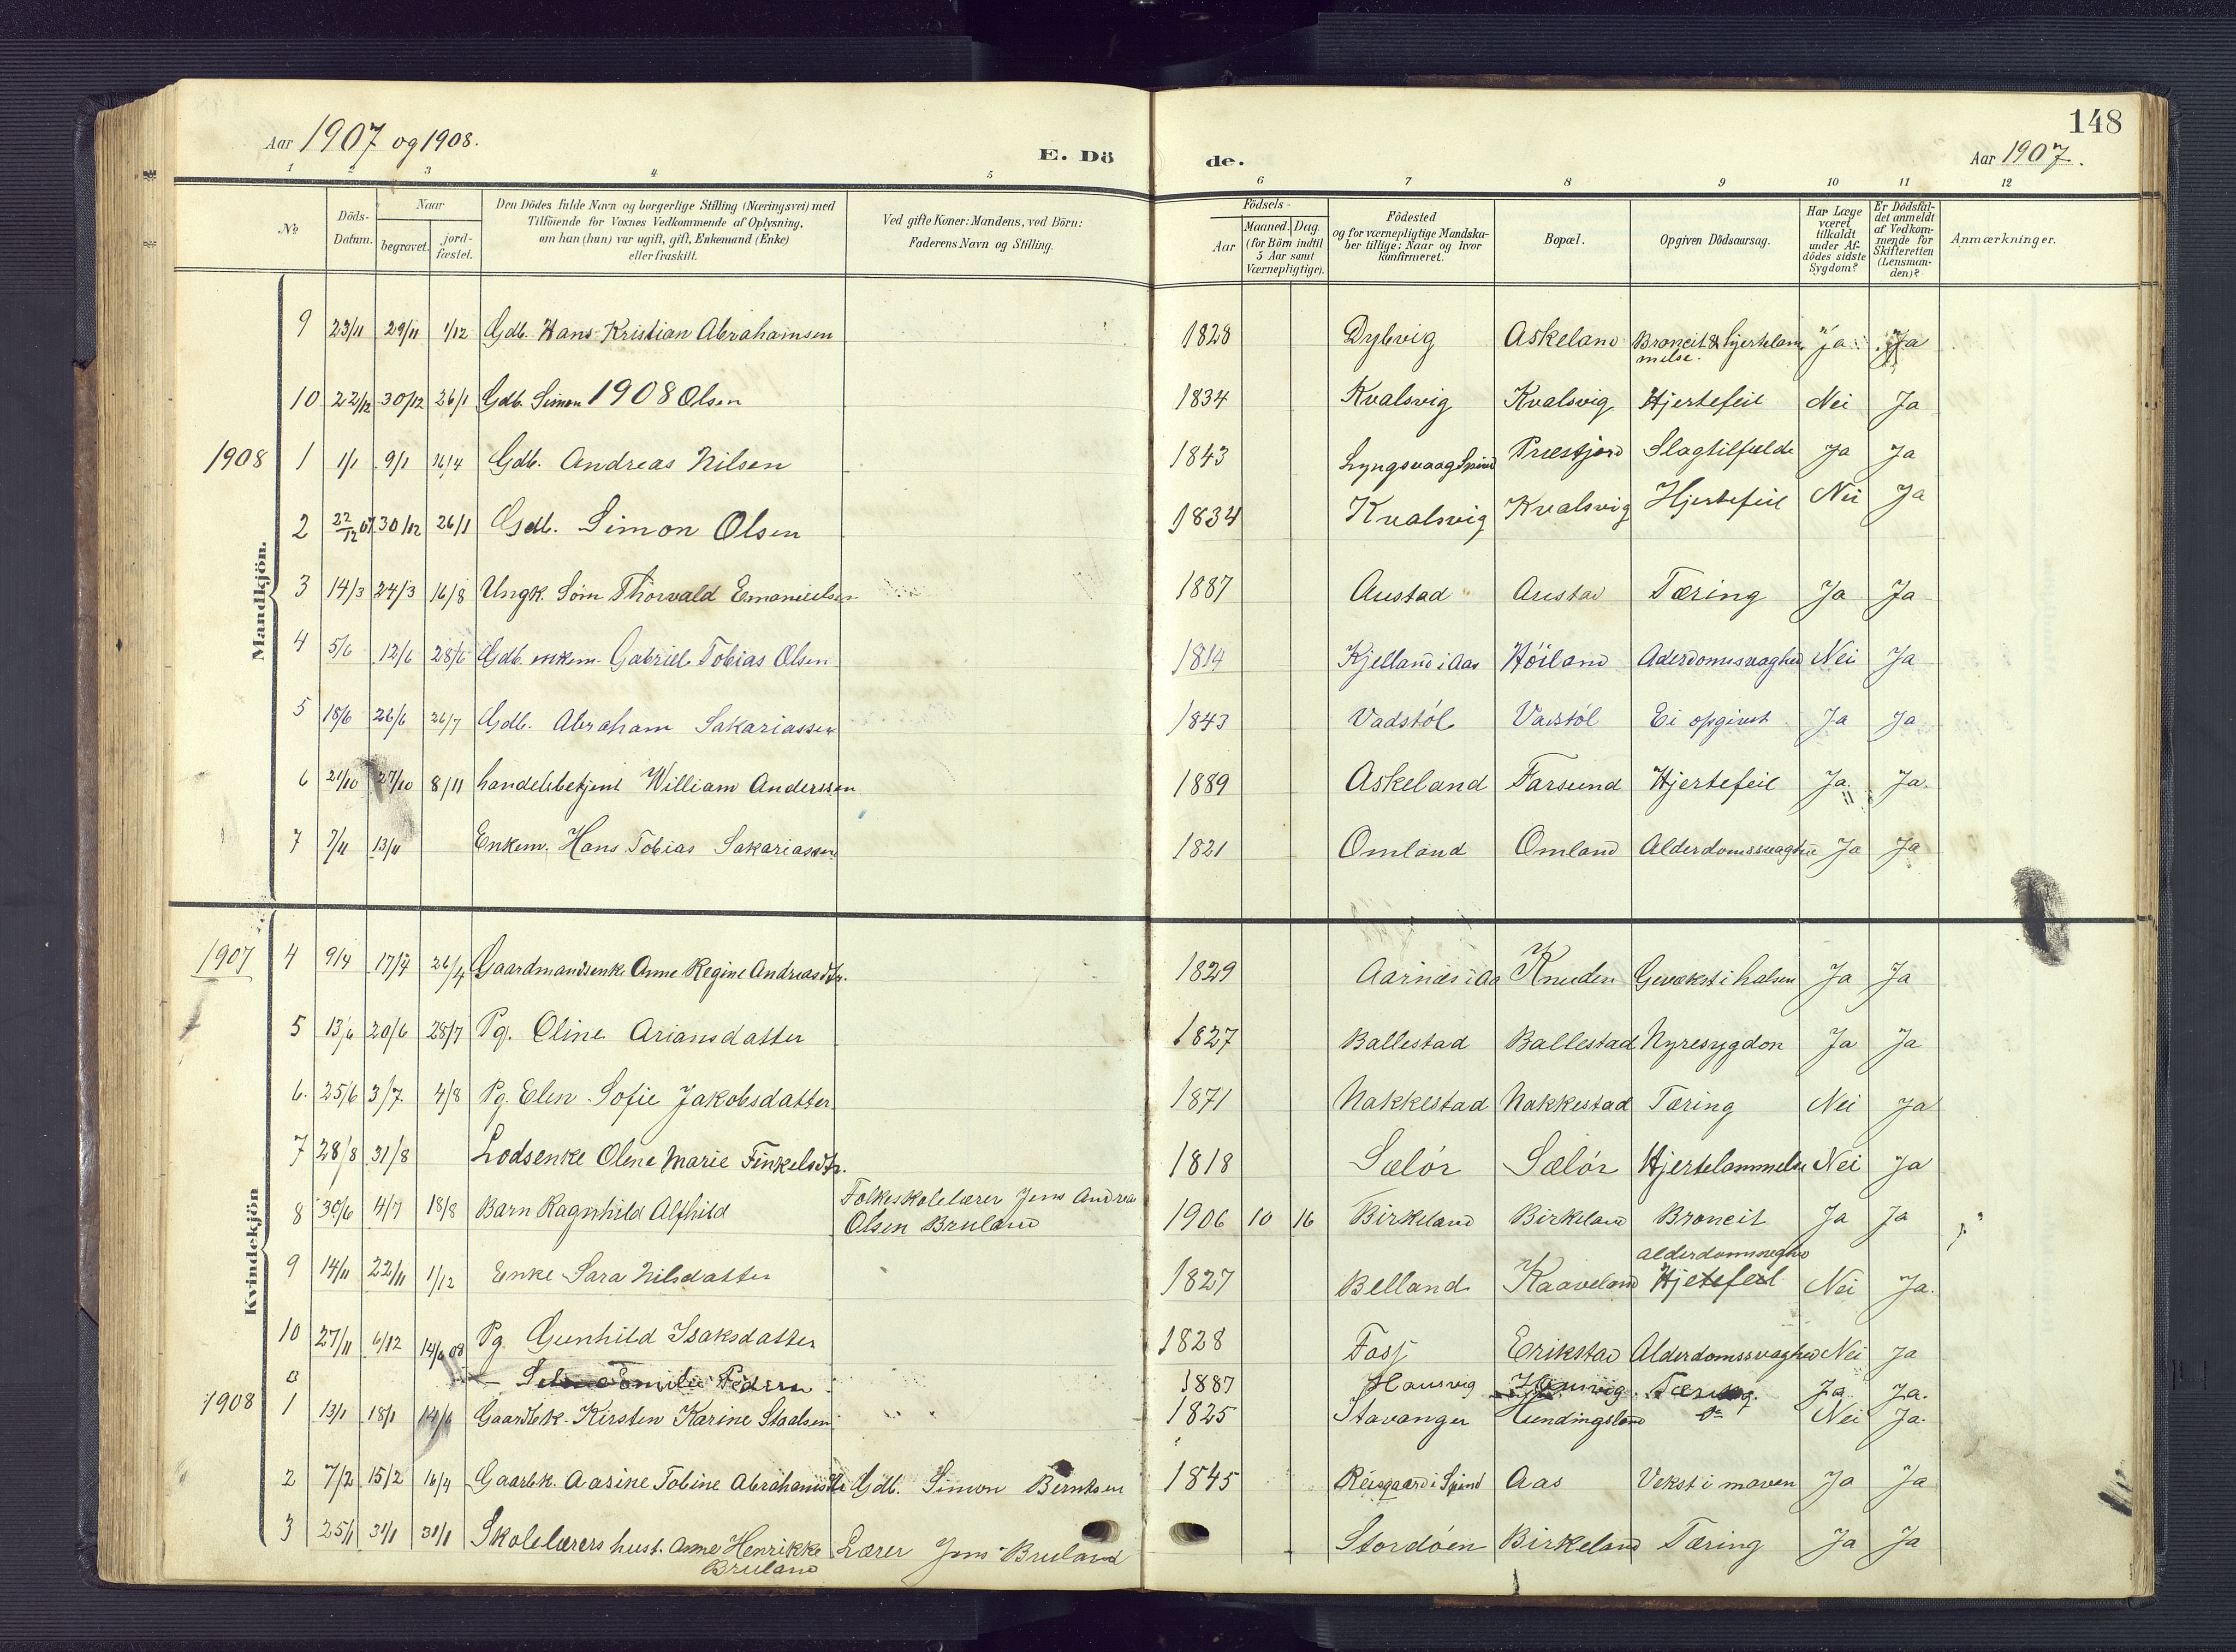 148
Aar 1907 og 1908.
E. Dö de.
Aar 1907.
1 2 3 4 5 6 7 8 9 10 11 12
№
Döds-Datum.
Naar
begravet.
jord-fæstet.
Den Dödes fulde Navn og borgerlige Stilling (Næringsvei) med
Tilföiende for Voxnes Vedkommende af Oplysning,
om han (hun) var ugift, gift, Enkemand (Enke)
eller fraskilt.
Ved gifte Koner: Mandens, ved Börn:
Faderens Navn og Stilling.
Födsels-
Aar
Maaned. Dag.
(for Börn indtil
5 Aar samt
Værnepligtige).
Födested
og for værnepligtige Mandska-
ber tillige: Naar og hvor
konfirmeret.
Bopæl.
Opgiven Dödsaarsag.
Har Læge
været
tilkaldt
under Af-
dödes sidste
Sygdom?
Er Dödsfal-
det anmeldt
af Vedkom-
mende for
Skifteretten
(Lensman-
den)?
Anmærkninger.
Mandkjön.
9 23/11 29/11 1/12 Gdb. Hans Kristian Abrahamsen 1828 Dybvig Askeland Broncit & hjertelam Ja Ja
melse.
10 22/12 30/12 26/1 Gdb. Simon 1908 Olsen 1834 Kvalsvig Kvalsvig Hjertefeil Nei Ja
1908 1 1/1 9/1 16/4 Gdb. Andreas Nilsen 1843 Lyngsvaag Spind Præstjord Slagtilfælde Ja Ja
2 22/12 07 30/12 26/1 Gdb. Simon Olsen 1834 Kvalsvig Kvalsvig Hjertefeil Nei Ja
3 14/3 24/3 16/8 Ungk. Söm. Thorvald Emanuelsen 1887 Austad Austad Tæring Ja Ja
4 5/6 12/6 28/6 Gdb. enkem. Gabriel Tobias Olsen 1814 Kjelland i Aas Höiland Aderdomsvaghed Nei Ja
5 18/6 26/6 26/7 Gdb. Abraham Sakariassen 1843 Vadstöl Vadstöl Ei opgivet Ja Ja
6 21/10 27/10 8/11 handelsbetjent William Anderssen 1889 Askeland Farsund Hjertefeil Ja. Ja.
7 7/11 13/11 Enkem. Hans Tobias Sakariassen 1821 Omland Omland Alderdomssvaghed Ja Ja
Kvindekjön
1907 4 9/4 17/4 26/4 Gaardmandsenke Anne Regine Andreasdtr. 1829 Aarnæs i Aa Knuden Gevækst i halsen Ja Ja
5 13/6 20/6 28/7 Pg. Oline Ariansdatter 1827 Ballestad Ballestad Nyresygdon Ja Ja
6. 25/6 3/7. 4/8 Pg. Elen Sofie Jakobsdatter 1871 Nakkestad Nakkestad Tæring Nei Ja
7 28/8 31/8 Lodsenke Olene Marie Tinkelsdtr. 1818 Sælör Sælör Hjertelammelse Nei Ja
8 30/6 4/7 18/8 Barn Ragnhild Alfhild Folkeskolelærer Jens Andreas
Olsen Bruland 1906 10 16 Birkeland Birkeland Broncit Ja Ja
Alderdomssvaghed
9 14/11 22/11 1/12 Enke Sara Nilsdatter 1827 Belland Kaaveland Hjetefeil Nei Ja.
10 27/11 6/12 14/6 08 Pg Gunhild Isaksdatter 1828 Foss Erikstad Alderdomssvaghed Nei Ja
Emilie Pedersen 1887 Hausvig Hausvig. Tæring. Ja. Ja.
1908 1 13/1 18/1 14/6 Gaardbk. Kirsten Karine Staalsen 1825 Stavanger Lundingsland Do Nei Ja.
2 7/2 15/2 16/4 Gaardbk. Aasine Tobine Abrahamsdtr Gdb. Simon Berntsen 1845 Reisgaard i Spind Aas Vekst i maven Ja Ja
3 25/1 31/1 31/1 Skolelærers hust. Anne Henrikke Lærer Jens Bruland Stordöen Birkeland Tæring Ja Ja
Bruland